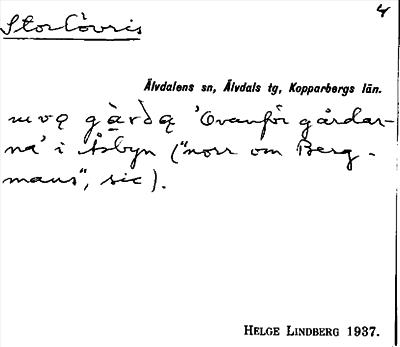 4
Storlövris
Älvdalens sn, Älvdals tg, Kopparbergs län.
gàrdą 'Ovanför gårdar-
na' i Åsbyn ("norr om Berg-
mans", sic).
HELGE LINDBERG 1937.